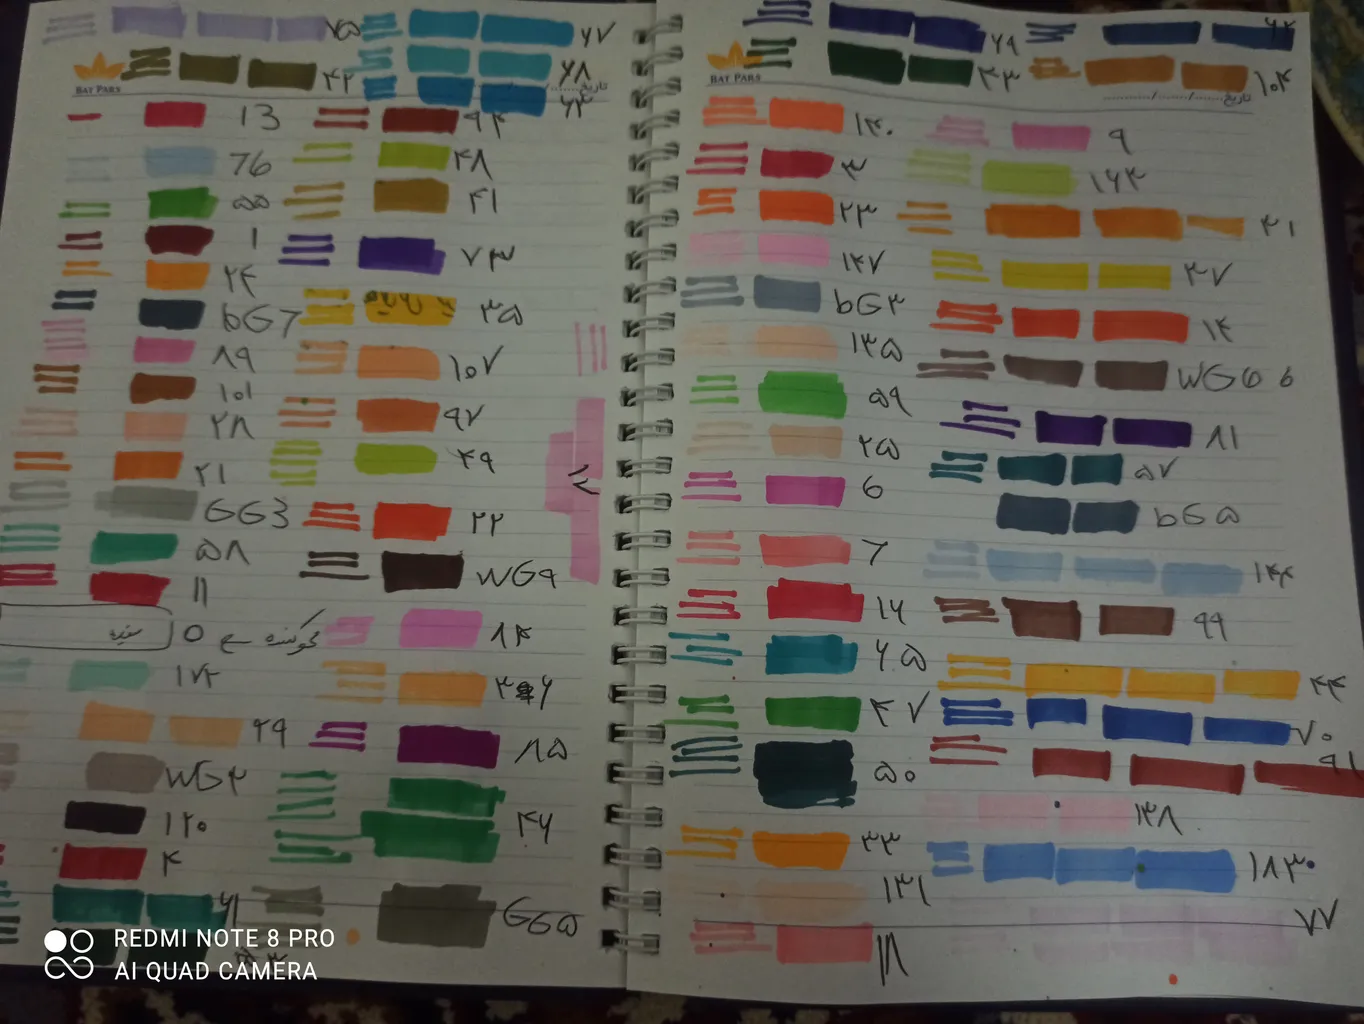 ۷۵
۶۷
۴۲
۶۸
BAT PARS
تاریخ:......../......../........
۶۳
13
۹۴
76
۴۸
۵۵
۴۱
۱
۷۳
۲۴
bG7
۳۵
۸۹
۱۰۷
۱۰۱
۹۷
۲۸
۴۹
۲۱
GG3
۲۲
۵۸
WG۹
۱۱
۸۴
۱۷۴
۲۹
۸۵
WG۳
۱۲۰
۴۶
۴
۶۱
GG۵
۶۹
۴۳
۱۰۴
BAT PARS
تاریخ:......../......../........
۱۴۰
۹
۳
۱۶۴
۲۳
۳۱
۱۴۷
۳۷
bG۳
۱۴
۱۳۵
WG6 6
۵۹
۸۱
۲۵
۵۷
6
bG۵
7
۱۴۴
۱۶
۹۹
۶۰۵
۳۴
۴۷
۷۰
۵۰
۹۱
۱۳۸
۳۳
۱۸۳۰
۱۳۱
۷۷
۱۸
REDMI NOTE 8 PRO
AI QUAD CAMERA